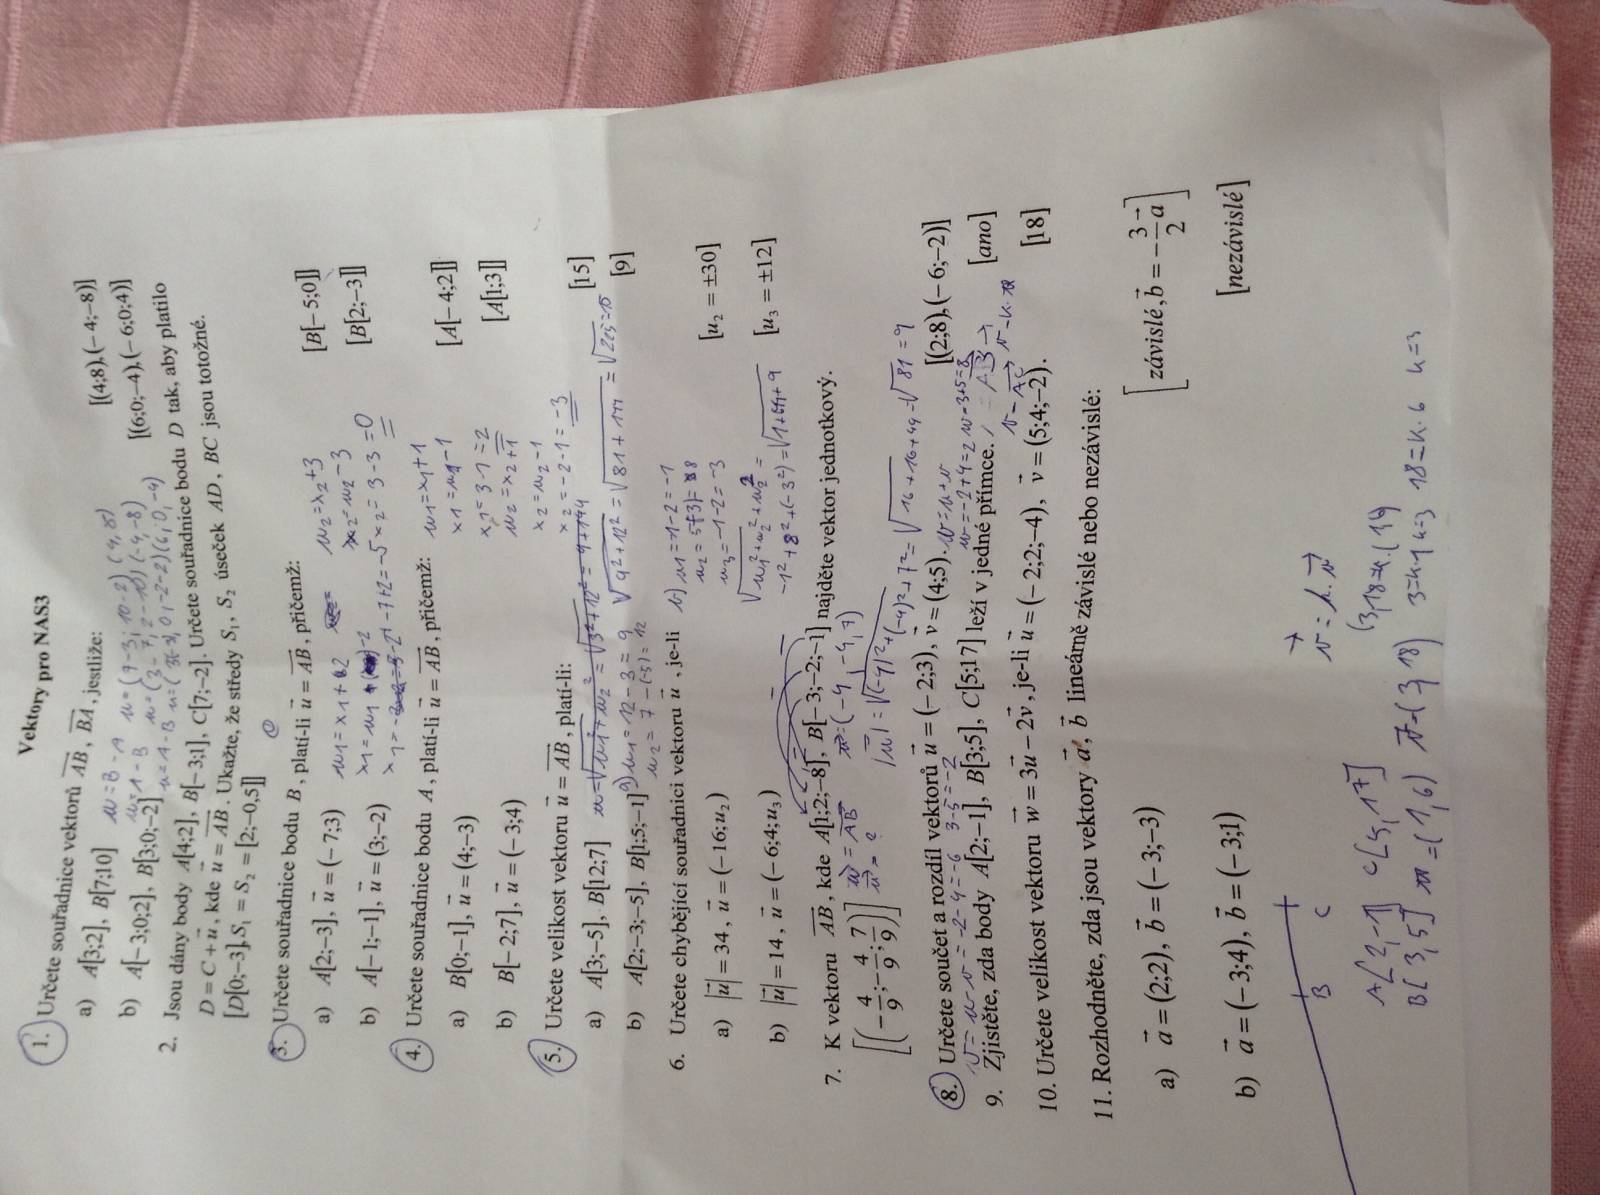 Vektory pro NAS3
1. Určete souřadnice vektorů AB, BA, jestliže:
a) A[3;2], B[7;10] [(4;8),(−4;−8)]
u = B − A u = (7−3; 10−2) (4,8)
b) A[−3;0;2], B[3;0;−2] [(6;0;−4),(−6;0;4)]
2. Jsou dány body A[4;2], B[−3;1], C[7;−2]. Určete souřadnice bodu D tak, aby platilo
D = C + u, kde u = AB. Ukažte, že středy S₁, S₂ úseček AD, BC jsou totožné.
[D[0;−3], S₁ = S₂ = [2;−0,5]]
3. Určete souřadnice bodu B, platí-li u = AB, přičemž:
a) A[2;−3], u = (−7;3) [B[−5;0]]
u₂ = x₂ + 3
b) A[−1;−1], u = (3;−2) [B[2;−3]]
4. Určete souřadnice bodu A, platí-li u = AB, přičemž:
a) B[0;−1], u = (4;−3) [A[−4;2]]
u₁ = x₁ + 1
b) B[−2;7], u = (−3;4) [A[1;3]]
x₁ = 3 − 1 = 2
x₂ = u₂ − 1
x₂ = −2 − 1 = −3
5. Určete velikost vektoru u = AB, platí-li:
a) A[3;−5], B[12;7] [15]
b) A[2;−3;−5], B[1;5;−1] [9]
u₁ = 12 − 3 = 9
u₂ = 7 − (−5) = 12
√9² + 12² = √81 + 144 = √225 = 15
6. Určete chybějící souřadnici vektoru u, je-li
b) u₁ = 1 − 2 = −1
u₃ = −1 − 2 = −3
a) |u| = 34, u = (−16;u₂) [u₂ = ±30]
b) |u| = 14, u = (−6;4;u₃) [u₃ = ±12]
7. K vektoru AB, kde A[1;2;−8], B[−3;−2;−1] najděte vektor jednotkový.
[(−4/9;−4/9;7/9)]
u = AB
u = (−4, −4, 7)
|u| = √(−4)² + (−4)² + 7² = √16 + 16 + 49 = √81 = 9
8. Určete součet a rozdíl vektorů u = (−2;3), v = (4;5). [(2;8),(−6;−2)]
w = u + v
w = −2 + 4 = 2 w = 3 + 5 = 8
u − v = −2 − 4 = −6 3 − 5 = −2
9. Zjistěte, zda body A[2;−1], B[3;5], C[5;17] leží v jedné přímce. [ano]
10. Určete velikost vektoru w = 3u − 2v, je-li u = (−2;2;−4), v = (5;4;−2). [18]
11. Rozhodněte, zda jsou vektory a, b lineárně závislé nebo nezávislé:
a) a = (2;2), b = (−3;−3) [závislé, b = −3/2 a]
b) a = (−3;4), b = (−3;1) [nezávislé]
B C
A[2,−1] C[5,17]
B[3,5] u = (1,6) v = (3,18)
3 = k·1 k = 3 18 = k·6 k = 3